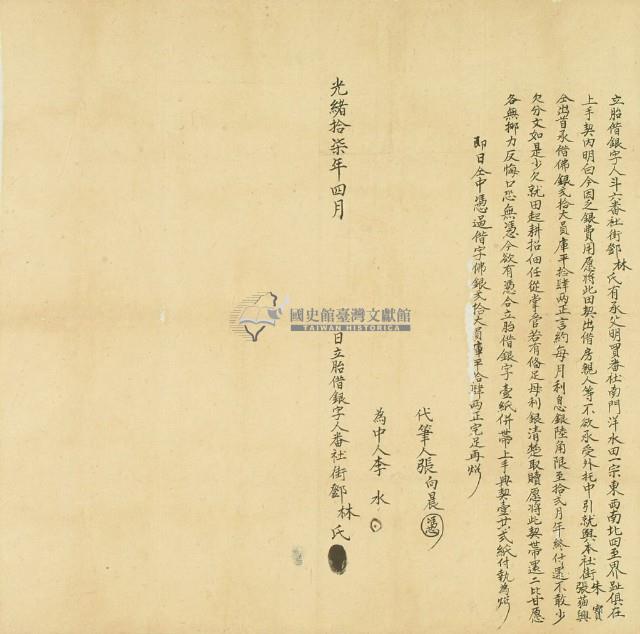 立胎借銀字人斗六番社街鄧林氏有承父明買番社南門洋水田一宗東西南北四至界趾俱在
上手契內明白今因乏銀費用愿將此田契出借房親人等不欲承受外托中引就與本社街朱寶張蒞興
仝出首承借佛銀弍拾大員庫平拾肆兩正言約每月利息銀陸角限至拾弍月年終付還不敢少
欠分文如是少欠就田起耕招佃任從掌管若有俻足母利銀清楚取贖愿將此契帶還二比甘愿
各無抑力反悔口恐無憑今欲有憑合立胎借銀字壹紙併帶上手典契壹廿弍紙付執為炤
即日仝中憑過借字佛銀弍拾大員庫平拾肆兩正完足再炤
代筆人張向晨 憑
為中人李水
光緒拾柒年四月 日立胎借銀字人番社街鄧林氏
國史館臺灣文獻館
TAIWAN HISTORICA